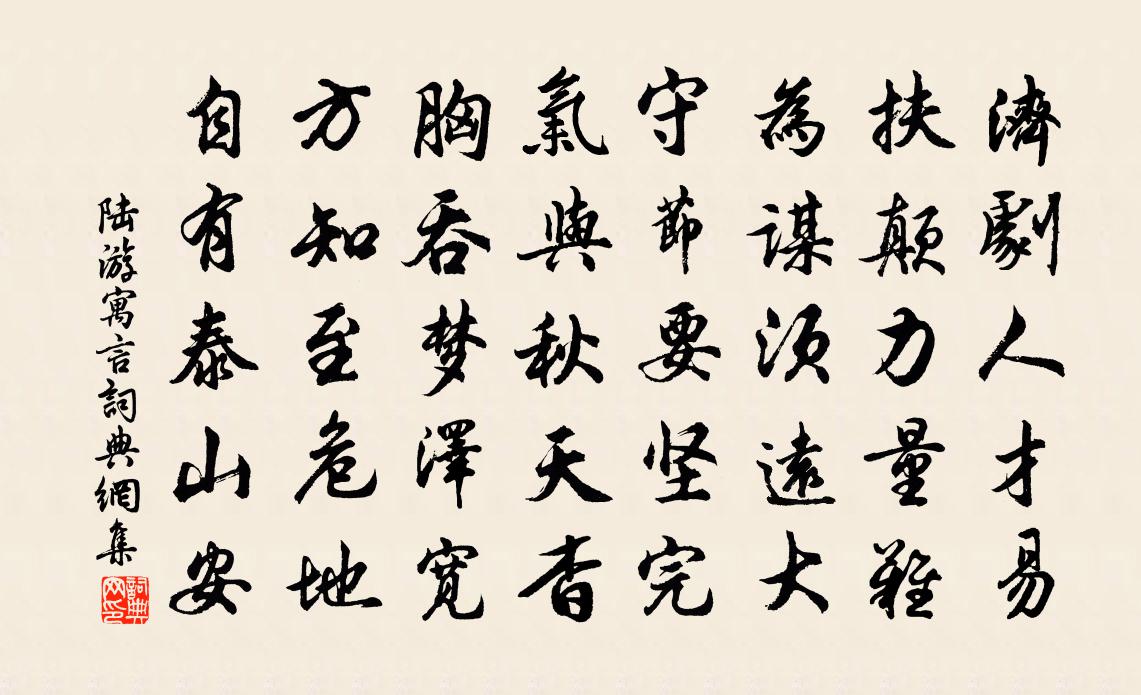 濟劇人才易
扶顛力量難
為謀須遠大
守節要坚完
氣與秋天杳
胸吞梦澤寬
方知至危地
自有泰山安
陆游寓言詞典網集
詞典网印